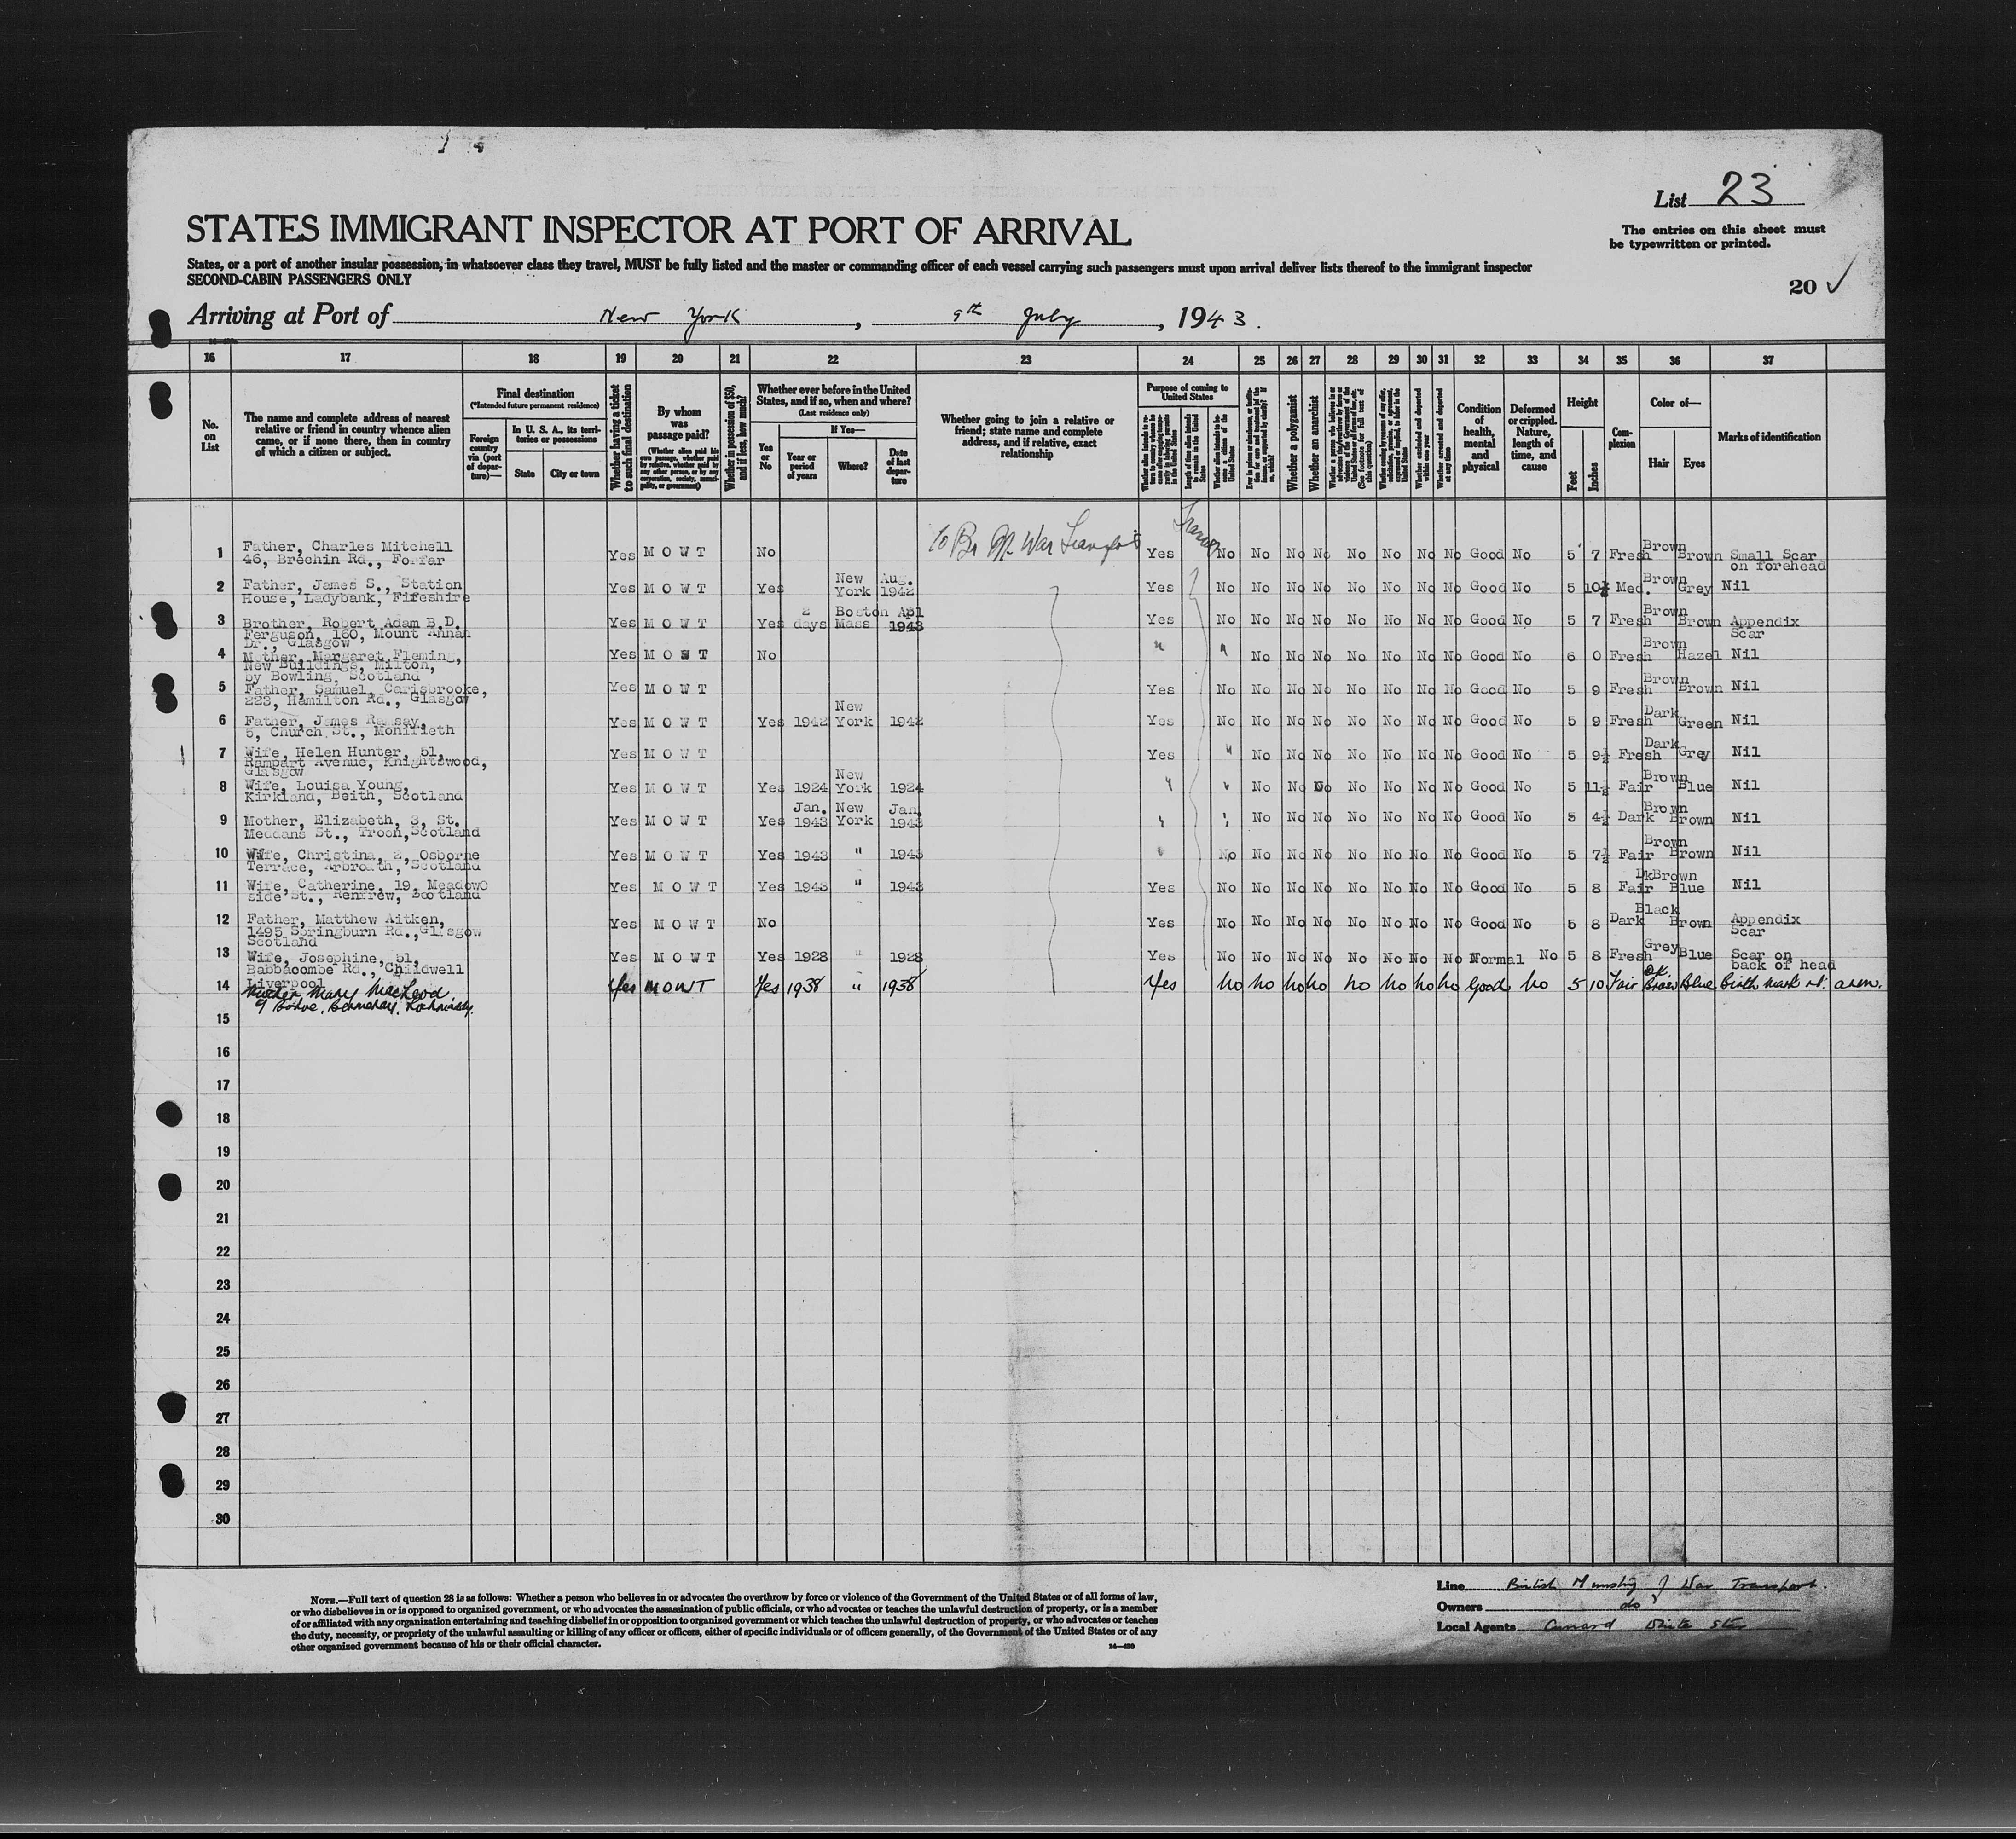 List 23
The entries on this sheet must
be typewritten or printed.
STATES IMMIGRANT INSPECTOR AT PORT OF ARRIVAL
States, or a port of another insular possession, in whatsoever class they travel, MUST be fully listed and the master or commanding officer of each vessel carrying such passengers must upon arrival deliver lists thereof to the immigrant inspector
SECOND-CABIN PASSENGERS ONLY
20 ✓
Arriving at Port of New York, 9th July, 1943.
16 17 18 19 20 21 22 23 24 25 26 27 28 29 30 31 32 33 34 35 36 37
No. on List
The name and complete address of nearest
relative or friend in country whence alien
came, or if none there, then in country
of which a citizen or subject.
Final destination
(*Intended future permanent residence)
Foreign country via (port of departure)—
In U. S. A., its territories or possessions
State
City or town
Whether having a ticket to such final destination
By whom was passage paid?
(Whether alien paid his own passage, whether paid by relative, whether paid by any other person, or by any corporation, society, municipality, or government)
Whether in possession of $50, and if less, how much?
Whether ever before in the United
States, and if so, when and where?
(Last residence only)
Yes or No
If Yes—
Year or period of years
Where?
Date of last departure
Whether going to join a relative or
friend; state name and complete
address, and if relative, exact
relationship
Purpose of coming to United States
Whether a polygamist
Whether an anarchist
Condition of health, mental and physical
Deformed or crippled. Nature, length of time, and cause
Height
Feet
Inches
Complexion
Color of—
Hair
Eyes
Marks of identification
1 Father, Charles Mitchell
46, Brechin Rd., Forfar Yes M O W T No To Br M. War Transport Yes No No No No No No No No Good No 5 7 Fresh Brown Brown Small Scar
on forehead
2 Father, James S., Station
House, Ladybank, Fifeshire Yes M O W T Yes New York Aug. 1942 Yes No No No No No No No No Good No 5 10½ Med. Brown Grey Nil
3 Brother, Robert Adam B.D.
Ferguson, 160, Mount Annan
Dr., Glasgow Yes M O W T Yes 2 days Boston Mass Apl 1943 Yes No No No No No No No No Good No 5 7 Fresh Brown Brown Appendix
Scar
4 Mother, Margaret Fleming,
New Buildings, Milton,
by Bowling, Scotland Yes M O S T No " " No No No No No No No Good No 6 0 Fresh Brown Hazel Nil
5 Father, Samuel, Carisbrooke,
223, Hamilton Rd., Glasgow Yes M O W T Yes No No No No No No No No Good No 5 9 Fresh Brown Brown Nil
6 Father, James Ramsay,
5, Church St., Monifieth Yes M O W T Yes 1942 New York 1942 Yes No No No No No No No No Good No 5 9 Fresh Dark Green Nil
7 Wife, Helen Hunter, 51,
Rampart Avenue, Knightswood,
Glasgow Yes M O W T Yes " No No No No No No No Good No 5 9½ Fresh Dark Grey Nil
8 Wife, Louisa Young,
Kirkland, Beith, Scotland Yes M O W T Yes 1924 New York 1924 " " No No No No No No No Good No 5 11½ Fair Brown Blue Nil
9 Mother, Elizabeth, 3, St.
Meddans St., Troon, Scotland Yes M O W T Yes Jan. 1943 New York Jan 1943 " " No No No No No No No Good No 5 4½ Dark Brown Brown Nil
10 Wife, Christina, 2, Osborne
Terrace, Arbroath, Scotland Yes M O W T Yes 1943 " 1943 " No No No No No No No No Good No 5 7½ Fair Brown Brown Nil
11 Wife, Catherine, 19, Meadow
side St., Renfrew, Scotland Yes M O W T Yes 1943 " 1943 Yes No No No No No No No No Good No 5 8 Fair DkBrown Blue Nil
12 Father, Matthew Aitken,
1495 Springburn Rd., Glasgow
Scotland Yes M O W T No Yes No No No No No No No No Good No 5 8 Dark Black Brown Appendix
Scar
13 Wife, Josephine, 51,
Babbacombe Rd., Childwell
Liverpool Yes M O W T Yes 1928 " 1928 Yes No No No No No No No No Normal No 5 8 Fresh Grey Blue Scar on
back of head
14 Mother Mary MacLeod
9 Borve, Bernerary, Lochmaddy. Yes M O W T Yes 1938 " 1938 Yes No No No No No No No No Good No 5 10 Fair Dk. Brown Blue Birth mark rt. arm.
15
16
17
18
19
20
21
22
23
24
25
26
27
28
29
30
NOTE.—Full text of question 28 is as follows: Whether a person who believes in or advocates the overthrow by force or violence of the Government of the United States or of all forms of law,
or who disbelieves in or is opposed to organized government, or who advocates the assassination of public officials, or who advocates or teaches the unlawful destruction of property, or is a member
of or affiliated with any organization entertaining and teaching disbelief in or opposition to organized government or which teaches the unlawful destruction of property, or who advocates or teaches
the duty, necessity, or propriety of the unlawful assaulting or killing of any officer or officers, either of specific individuals or of officers generally, of the Government of the United States or of any
other organized government because of his or their official character.
Line British Ministry of War Transport.
Owners do
Local Agents Cunard White Star